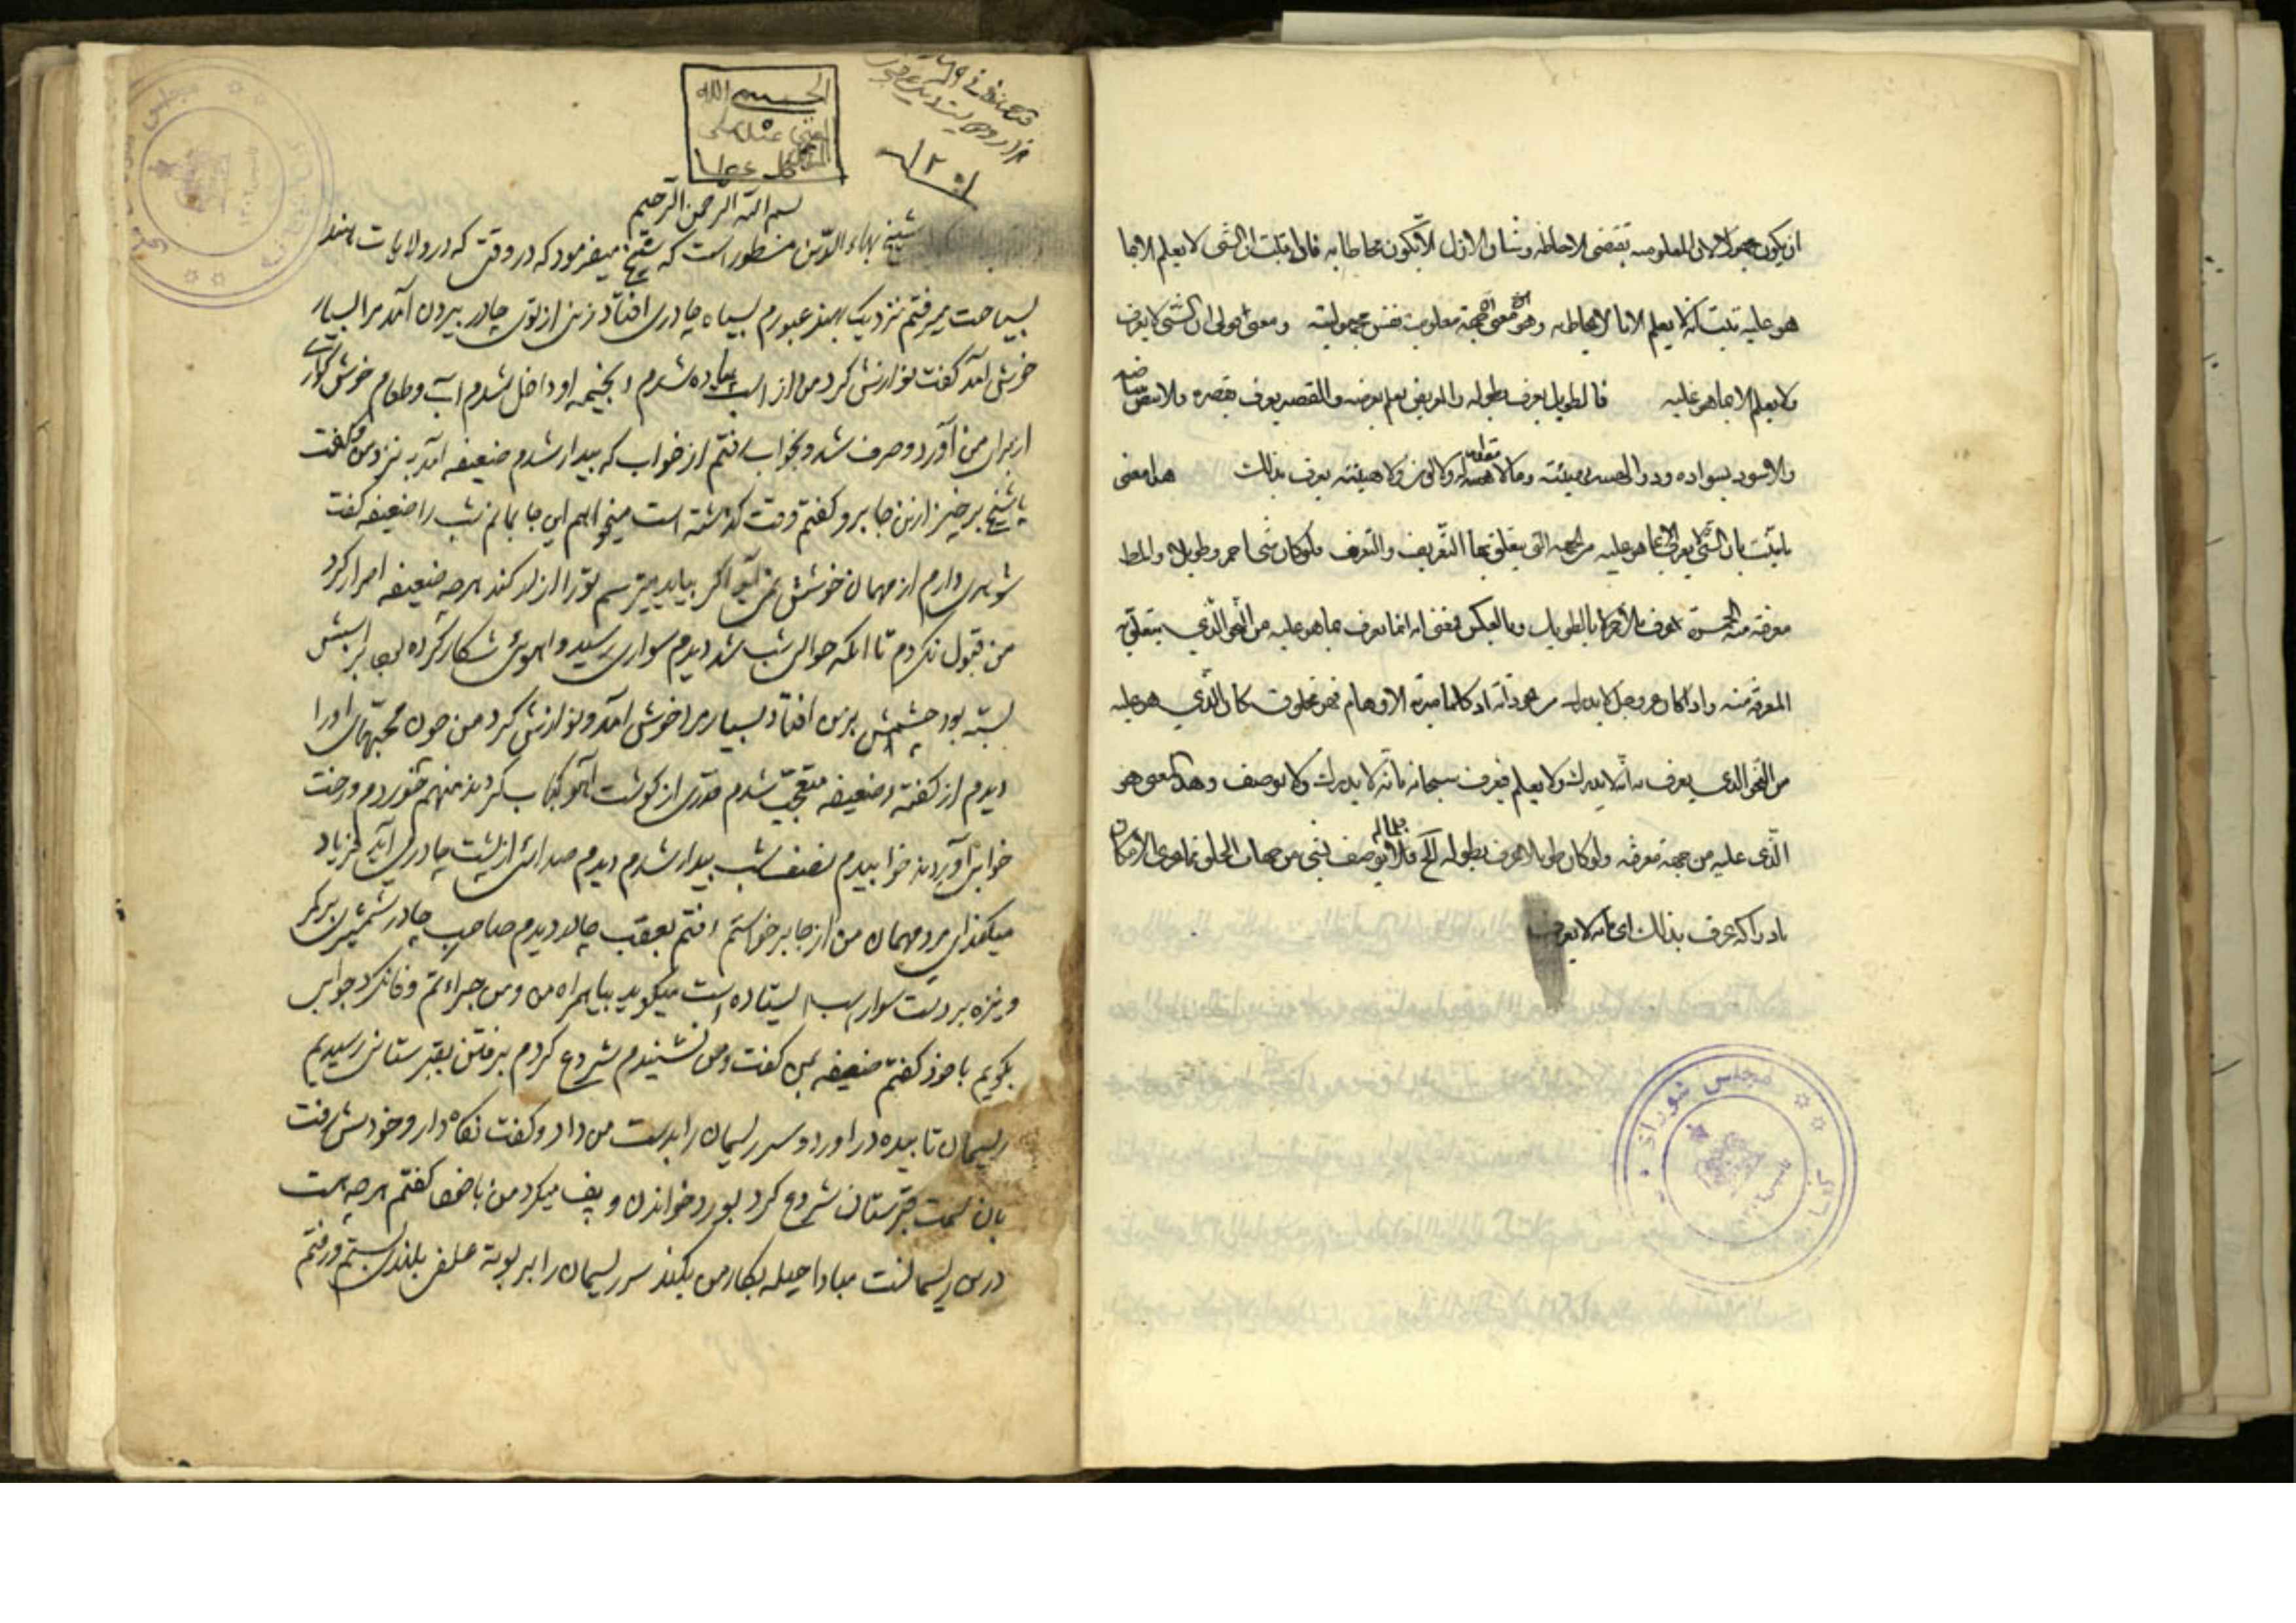 ان یکون مجهولا لان المعلومیه تقتضی الاحاطه وشان الازل الا یکون محاطا به فاذا ثبت ان الشی لا یعلم الا بما
هو علیه ثبت انه لا یعلم الا بانه لا یحاط به وهو معنی ان جهة معلومیته نفس مجهولیته ومعنی قولی ان الشی لا یعرف
ولا یعلم الا بما هو علیه فالطویل یعرف بطوله والعریض یعلم بعرضه والقصیر یعرف بقصره والابیض ببیاضه
والاسود بسواده وذو الهیئة بهیئته وما لا مقدار له ولا لون ولا هیئة یعرف بذلک هذا معنی
ما ثبت بان الشی یعرف بما هو علیه من الجهه التی یتعلق بها التعریف والتعرف فلو کان شی احمر وطویلا والمط
معرفة منه الحمرة لم یعرف بالطویل وبالعکس فعنی انه انما یعرف بما هو علیه من النحو الذی یتعلق به
المعرفة منه واذا کان عز وجل لا یدرک من نحو ذاته اذ کلما میزه الاوهام فهو مخلوق کان الذی هو علیه
من النحو الذی یعرف به انه لا یدرک ولا یعلم فیعرف سبحانه بانه لا یدرک ولا یوصف وهذا معنی هو
الذی علیه من جهة معرفته ولو کان طویلا لعرف بطوله الخ فلا یوصف بشی من جهات الخلق تعالی
بادراکه عرف بذلک ای بانه لا یعرف
مجلس شورای
بسم الله الرحمن الرحیم
شیخ بهاء الدین مسطور است که شیخ میفرمود که در وقتی که در ولایات هند
بسیاحت میرفتم نزدیک بهند عبورم بسیاه چادری افتاد زنی از توی چادر بیرون آمد مرا بسیار
خوش آمد گفت نوازش کرد من از اسب پیاده شدم بخیمه او داخل شدم آب و طعام خوش گوار
از برای من آورد و صرف شد و بخواب رفتم از خواب که بیدار شدم ضعیفه آمد بنزد من و گفت
یا شیخ برخیز از این جا برو گفتم وقت گذشته است میخواهم این جا بمانم شب را ضعیفه گفت
شوهری دارم از مهمان خوشش نمی آید اگر بیاید میترسم تو را ازار کند هر چه ضعیفه اصرار کرد
من قبول نکردم تا آنکه حوالی شب شد دیدم سواری رسید و اهوئی شکار کرده بر اسبش
بسته بود چشمش بر من افتاد بسیار مرا خوش آمد و نوازش کرد من چون محبتهای او را
دیدم از گفته ضعیفه متعجب شدم قدری از گوشت آهو کباب کردند منهم خوردم و رخت
خوابی آوردند خوابیدم نصف شب بیدار شدم دیدم صدائی از پشت چادر می آید فریاد
میکند ای مرد مهمان من از جا برخواستم رفتم بعقب چادر دیدم صاحب چادر شمشیر بر کمر
و نیزه بر دست سوار اسب ایستاده است میگوید بیا همراه من و من جراءتم وفا نکرد جوابی
بگویم با خود گفتم ضعیفه بمن گفت و من نشنیدم شروع کردم برفتن بقبرستانی رسیدیم
ریسمان تابیده در آورد و سر ریسمان را بدست من داد و گفت نگاه دار و خودش رفت
بان سمت قبرستان شروع کرد بورد خواندن و پف میکرد من با خود گفتم هر چه هست
در این ریسمانست مبادا حیله بکار من بکند سر ریسمان را بر بوته علف بلندی بستم و رفتم